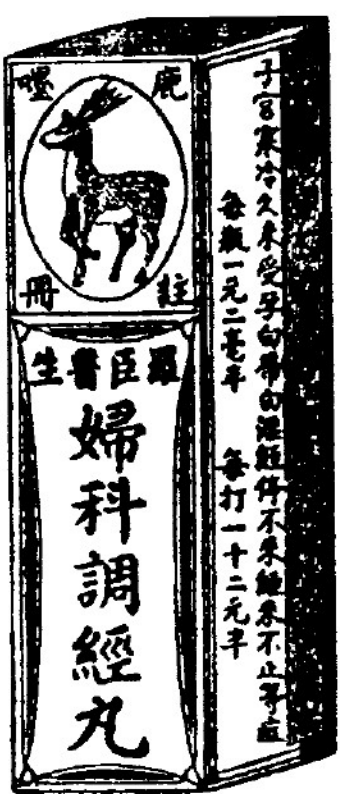 鹿嘜
註冊
羅臣醫生
婦科調經丸
子宮寒冷久未受孕白帶白經停不來經來不止等症
每瓶一元二毫半 每打一十二元半